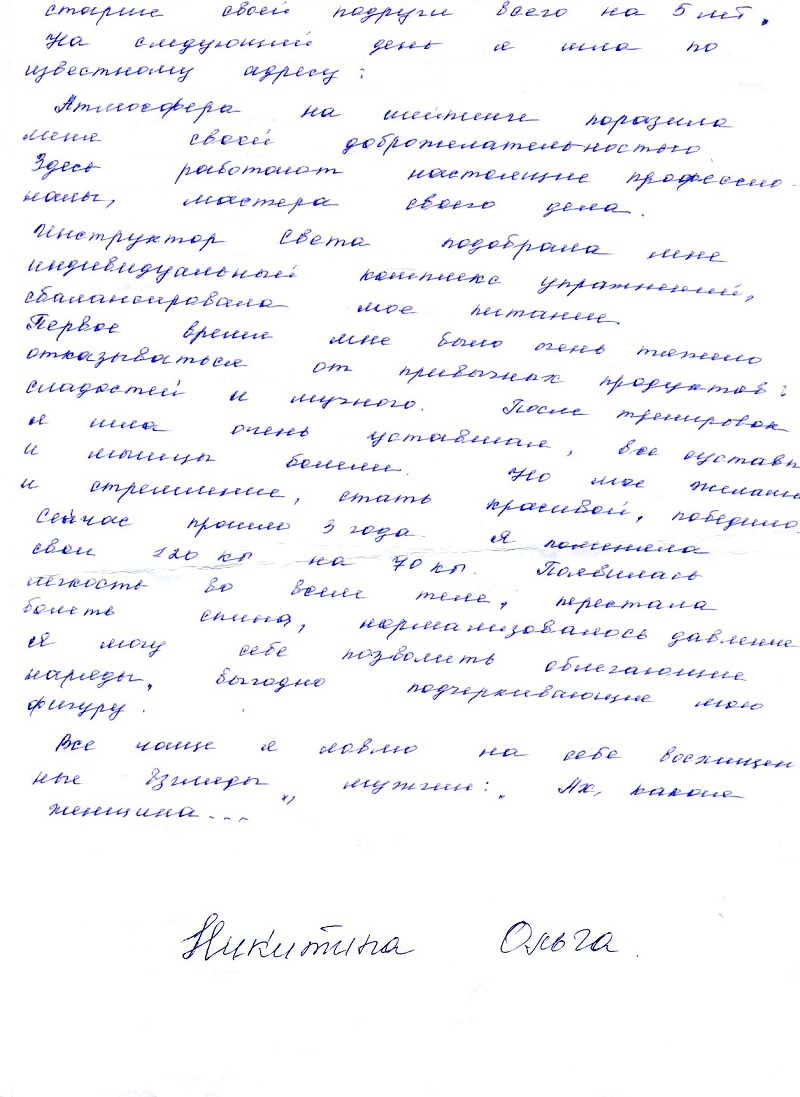 старше своей подруги всего на 5 лет.
На следующий день я шла по
известному адресу:
Атмосфера на шейпинге поразила
меня своей доброжелательностью
Здесь работают настоящие профессио-
налы, мастера своего дела.
Инструктор Света подобрала мне
индивидуальный комплекс упражнений,
сбалансировала мое питание
Первое время мне было очень тяжело
отказываться от привычных продуктов:
сладостей и мучного. После тренировок
я шла очень уставшая, все суставы
и мышцы болели. Но мое желание
и стремление, стать красивой, победило.
Сейчас прошло 3 года. Я поменяла
свои 120 кг на 70 кг. Появилась
легкость во всем теле, перестала
болеть спина, нормализовалось давление
Я могу себе позволить облегающие
наряды, выгодно подчеркивающие мою
фигуру.
Все чаще я ловлю на себе восхищен
ные взгляды мужчин: „Ах, какая
женщина..."
Никитина Ольга.